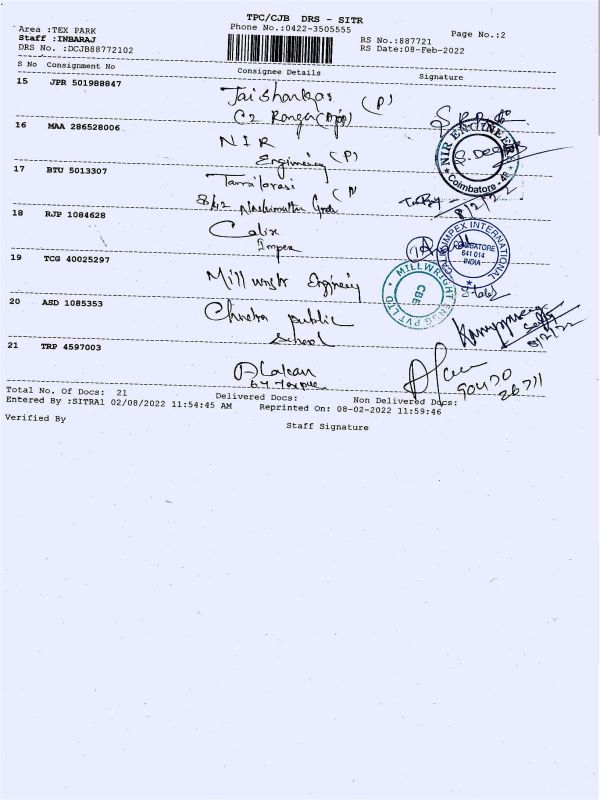 TPC/CJB DRS - SITR
Area :TEX PARK
Phone No.:0422-3505555
Page No.:2
Staff :INBARAJ
RS No.:887721
DRS No. :DCJB88772102
RS Date:08-Feb-2022
S No Consignment No Consignee Details Signature
15 JPR 501988847
Jaishankar (P)
C2 Ranga
16 MAA 286528006
NIR
Engineering (P)
NIR ENGINEE
Coimbatore
17 BTU 5013307
Tamilarasi (P
8/2/22
18 RJP 1084628
Calix
Impex
IMPEX INTERNATIONAL
COIMBATORE
641 014
INDIA
19 TCG 40025297
Millwright
MILLWRIGHT ENGG PVT LTD
CBE
20 ASD 1085353
public
School
8/2/22
21 TRP 4597003
Total No. Of Docs: 21 Delivered Docs: Non Delivered Docs:
Entered By :SITRA1 02/08/2022 11:54:45 AM Reprinted On: 08-02-2022 11:59:46
Verified By
Staff Signature